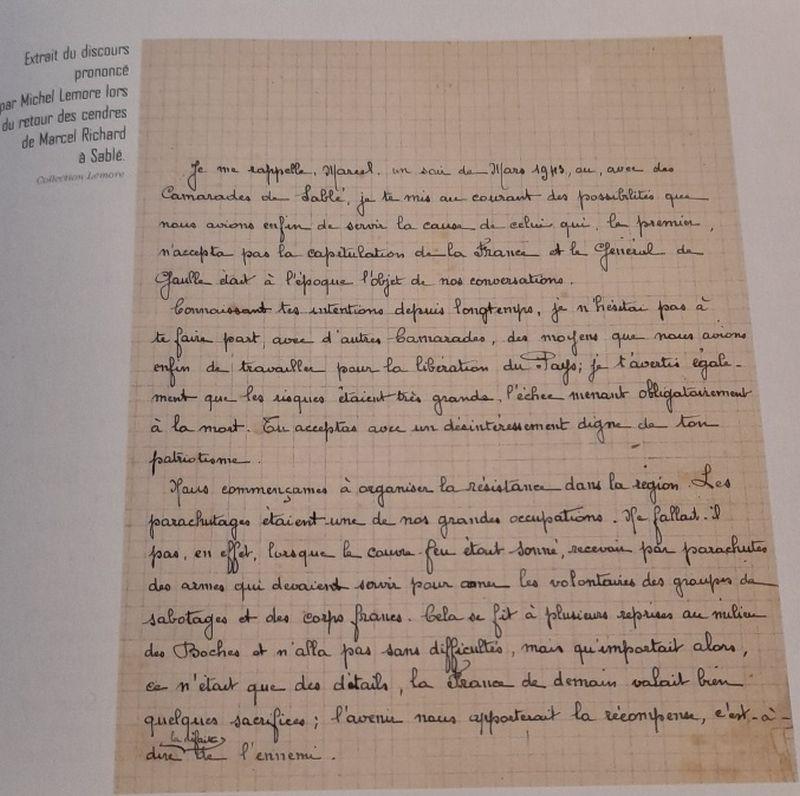 Extrait du discours
prononcé
par Michel Lemore lors
du retour des cendres
de Marcel Richard
à Sablé.
Collection Lemore
Je me rappelle, Marcel, un soir de Mars 1943, ou, avec des
Camarades de Sablé, je te mis au courant des possibilités que
nous avions enfin de servir la cause de celui qui, le premier,
n'accepta pas la capitulation de la France et le Général de
Gaulle était à l'époque l'objet de nos conversations.
Connaissant tes intentions depuis longtemps, je n'hésitai pas à
te faire part, avec d'autres Camarades, des moyens que nous avions
enfin de travailler pour la libération du Pays; je t'avertis égale-
ment que les risques étaient très grands, l'échec menant obligatoirement
à la mort. Tu acceptas avec un désintéressement digne de ton
patriotisme.
Nous commençames à organiser la résistance dans la région. Les
parachutages étaient une de nos grandes occupations. Ne fallait-il
pas, en effet, lorsque le couvre-feu était sonné, recevoir par parachutes
des armes qui devaient servir pour armer les volontaires des groupes de
sabotages et des corps francs. Cela se fit à plusieurs reprises au milieu
des Boches et n'alla pas sans difficultés, mais qu'importait alors,
ce n'était que des détails, la France de demain valait bien
quelques sacrifices; l'avenir nous apporterait la récompense, c'est-à-
la défaite
dire de l'ennemi.